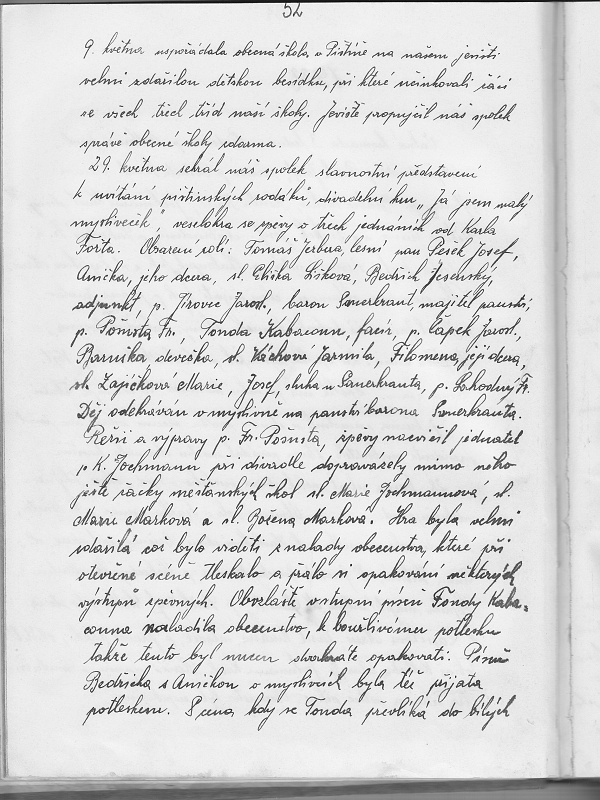 52
9. května uspořádala obecná škola v Pištíně na našem jevišti
velmi zdařilou dětskou besídku, při které účinkovali žáci
ze všech třech tříd naší školy. Jeviště propůjčil náš spolek
správě obecné školy zdarma.
29. května sehrál náš spolek slavnostní představení
k uvítání pištínských rodáků, divadelní hru „Já jsem malý
mysliveček", veselohra se zpěvy o třech jednáních od Karla
Fořta. Obsazení rolí: Tomáš Jerbus, lesní pan Pešek Josef,
Anička, jeho dcera, sl. Eliška Šišková, Bedřich Jesenský,
adjunkt, p. Trovec Jarosl., baron Sauerkraut, majitel panství,
p. Pošusta Fr. Tonda Kabacann, facír, p. Čapek Jarosl.,
Barunka děvečka, sl. Káchová Jarmila, Filomena, její dcera,
sl. Zajíčková Marie, Josef, sluha u Sauerkrauta, p. Lahodný Fr.
Děj odehráván v myslivně na panství barona Sauerkrauta.
Režii a výpravy p. Fr. Pošusta, zpěvy nacvičil jednatel
p. K. Jochmann při divadle dopravázely mimo něho
ještě žačky měšťanských škol sl. Marie Jochmannová, sl.
Marie Markova a sl. Božena Markova. Hra byla velmi
zdařilá což bylo viděti z nálady obecenstva, které při
otevřené scéně tleskalo a přálo si opakování některých
výstupů zpěvných. Obzvláště vstupní píseň Tondy Kaba-
canna naladila obecenstvo, k bouřlivému potlesku
takže tento byl nucen dvakráte opakovati. Píseň
Bedřicha s Aničkou o myslivcích byla též přijata
potleskem. Scéna kdy se Tonda převléká do bílých